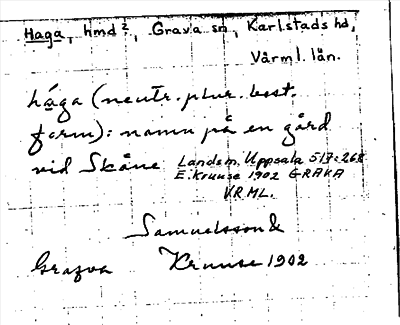 Haga, hmd 2, Grava sn, Karlstads hd,
Värml. län.
håga (neutr. plur. best.
form): namn på en gård
vid Skåne Landsm. Uppsala 517:268
E. Kruuse 1902 GRAVA
VRML.
Samuelsson &
Grafva Kruuse 1902